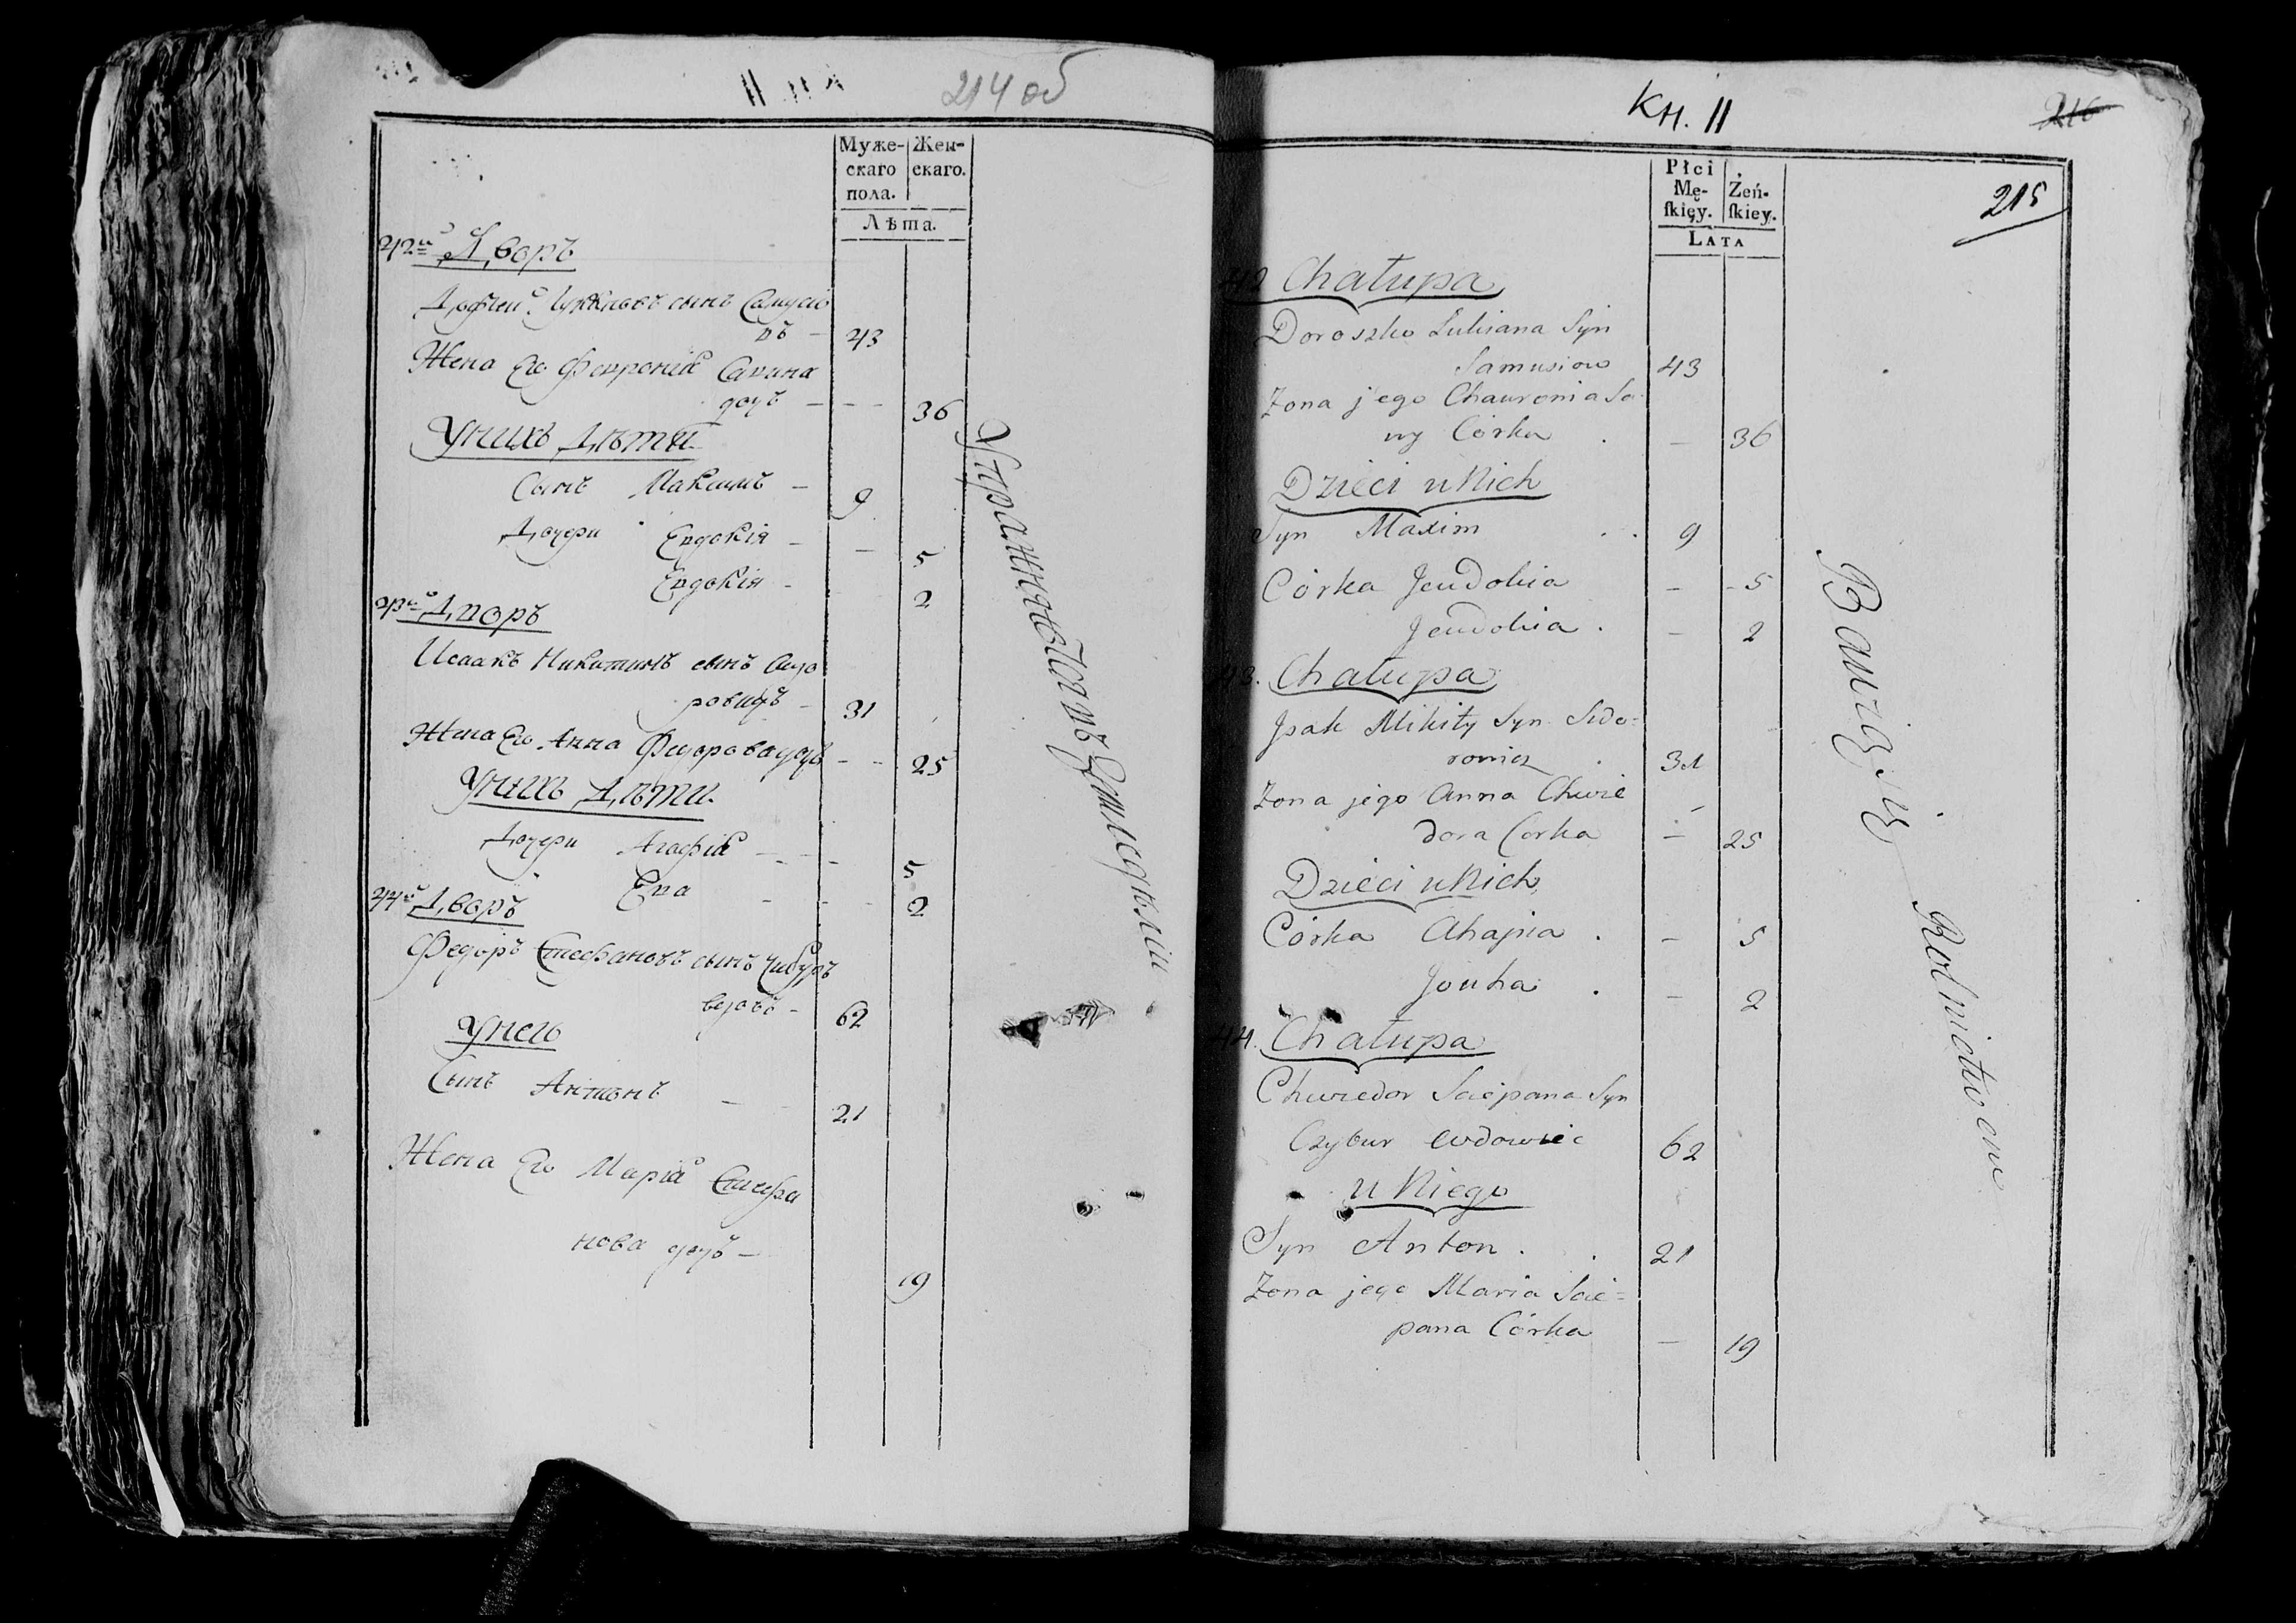 214 об
Муже-
скаго
пола.
Жен-
скаго.
Лѣта.
42й Дворъ
сынъ Самусіо
въ — 43
Жена Его Феврониа Савина
дочь — 36
У нихъ Дѣти
Сынъ Максимъ — 9
Дочери Евдокія — 5
Евдокія — 2
43й Дворъ
Исаакъ Никитинъ сынъ Сидо
ровичъ — 31
Жена Его Анна Федорова дочь — 25
У нихъ Дѣти
Дочери Агафіа — 5
Ева — 2
44й Дворъ
Федоръ Стефановъ сынъ Чибуръ
вдовъ — 62
У него
Сынъ Антонъ — 21
Жена Его Маріа Стефа
нова дочь — 19
Упражняется въ Земледѣліи
Кн. 11
216
215
Płci
Mę-
ſkięy.
Żeń-
ſkiey.
LATA
42 Chałupa
Doroszko Lukiana Syn
Samusiow 43
Zona jego Chauronia Sa-
wy Córka . — 36
Dzieci u Nich
Syn Maxim . . 9
Córka Jeudokia — 5
Jeudokia . — 2
43. Chałupa
Jsak Mikity Syn Sido=
rowicz . 31
Zona jego Anna Chwie
dora Corka — 25
Dzieci u Nich
Córka Ahapia . — 5
Jouha . — 2
44. Chałupa
Chwiedor Sciepana Syn
Czybur Wdowiec 62
u Niego
Syn Anton . . 21
Zona jego Maria Scie=
pana Córka — 19
Bawią się Rolnictwem